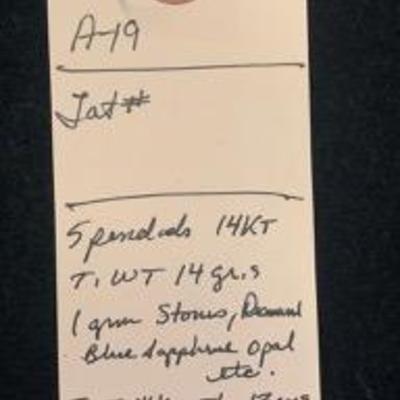 A-19
Lot#
5 pendants 14KT
T. WT 14 grs
1 grm Stones, Diamond
Blue Sapphire Opal
etc.